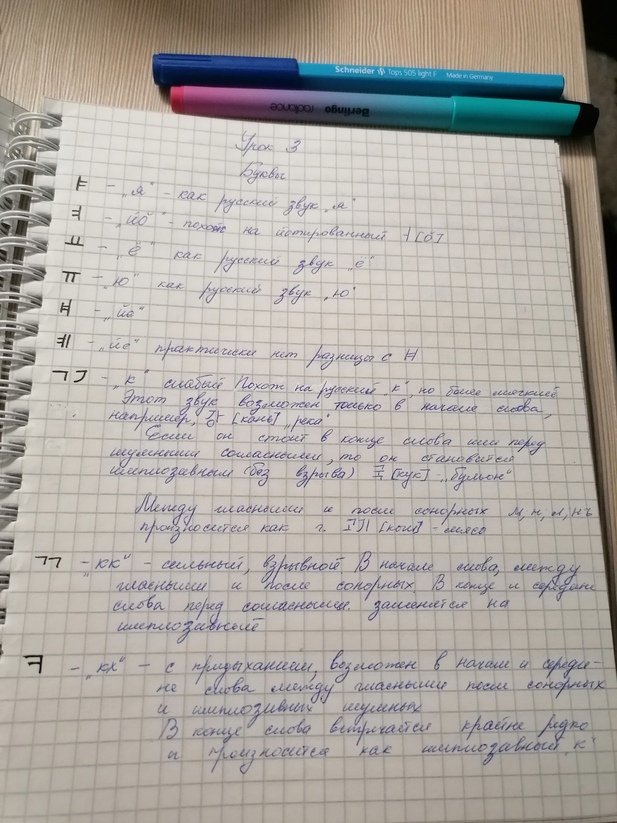 Schneider Tops 505 light F Made in Germany
Berlingo radiance
Урок 3
Буквы
ㅑ - „я" - как русский звук „я"
ㅕ - „йо" - похож на йотированный ㅓ[о]
ㅛ - „ё" как русский звук „ё"
ㅠ - „ю" как русский звук „ю"
ㅒ - „йа"
ㅖ - „йе" практически нет разницы с ㅐ
ㄱ - „к" слабый Похож на русский „к", но более мягкий
Этот звук возможен только в начале слова,
например, 강 [кань] „река"
Если он стоит в конце слова или перед
шумными согласными, то он становится
имплозивным (без взрыва) 국 [кук] - „бульон"
Между гласными и после сонорных м, н, л, нъ
произносится как г. 고기 [коги] - мясо
ㄲ - „кк" - сильный, взрывной В начале слова, между
гласными и после сонорных. В конце и середине
слова перед согласными заменяется на
имплозивный
ㅋ - „кх" - с придыханием, возможен в начале и середи-
не слова между гласными после сонорных
и имплозивных шумных
В конце слова встречается крайне редко
и произносится как имплозивный „к"